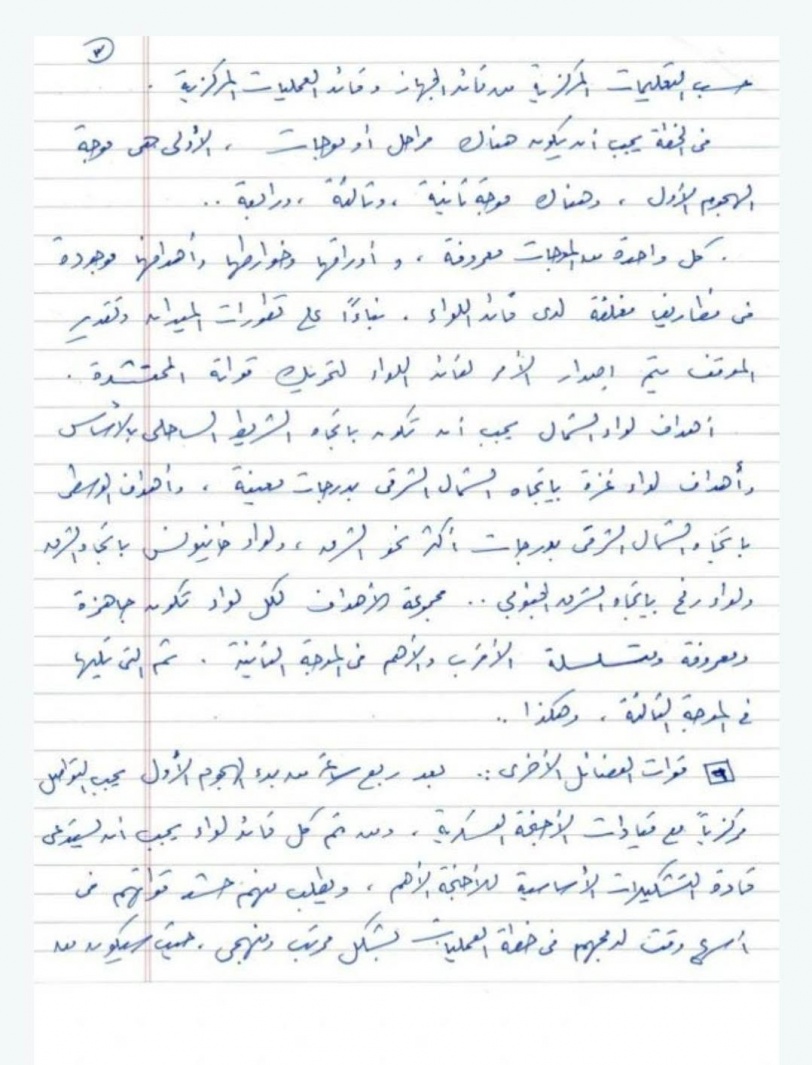 ٣
حسب التعليمات المركزية من قائد الجهاز وقائد العمليات المركزية .
في الخطة يجب أن يكون هناك مراحل أو موجات ، الأولى هي موجة
الهجوم الأول ، وهناك موجة ثانية ، وثالثة ، ورابعة ..
. كل واحدة من الموجات معروفة ، و أوراقها وخوارطها وأهدافها موجودة
في مظاريف مغلقة لدى قائد اللواء . بناءًا على تطورات الميدان وتقدير
الموقف يتم إصدار الأمر لقائد اللواء لتحريك قواته المحتشدة .
أهداف لواء الشمال يجب أن تكون باتجاه الشريط الساحلي بالأساس
وأهداف لواء غزة باتجاه الشمال الشرقي بدرجات معينة ، وأهداف الوسطى
باتجاه الشمال الشرقي بدرجات أكثر نحو الشرق ، ولواء خانيونس باتجاه الشرق
ولواء رفح باتجاه الشرق الجنوبي .. مجموعة الأهداف لكل لواء تكون جاهزة
ومعروفة ومتسلسلة الأقرب والأهم في الموجة الثانية . ثم التي تليها
في الموجة الثالثة ، وهكذا ..
قوات الفصائل الأخرى :. بعد ربع ساعة من بدء الهجوم الأول يجب التواصل
مركزياً مع قيادات الأجنحة العسكرية ، ومن ثم كل قائد لواء يجب أن يستدعي
قادة التشكيلات الأساسية للأجنحة الأهم ، ويطلب منهم حشد قواتهم في
أسرع وقت لدمجهم في خطة العمليات بشكل مرتب ومنهجي . حيث سيكون من